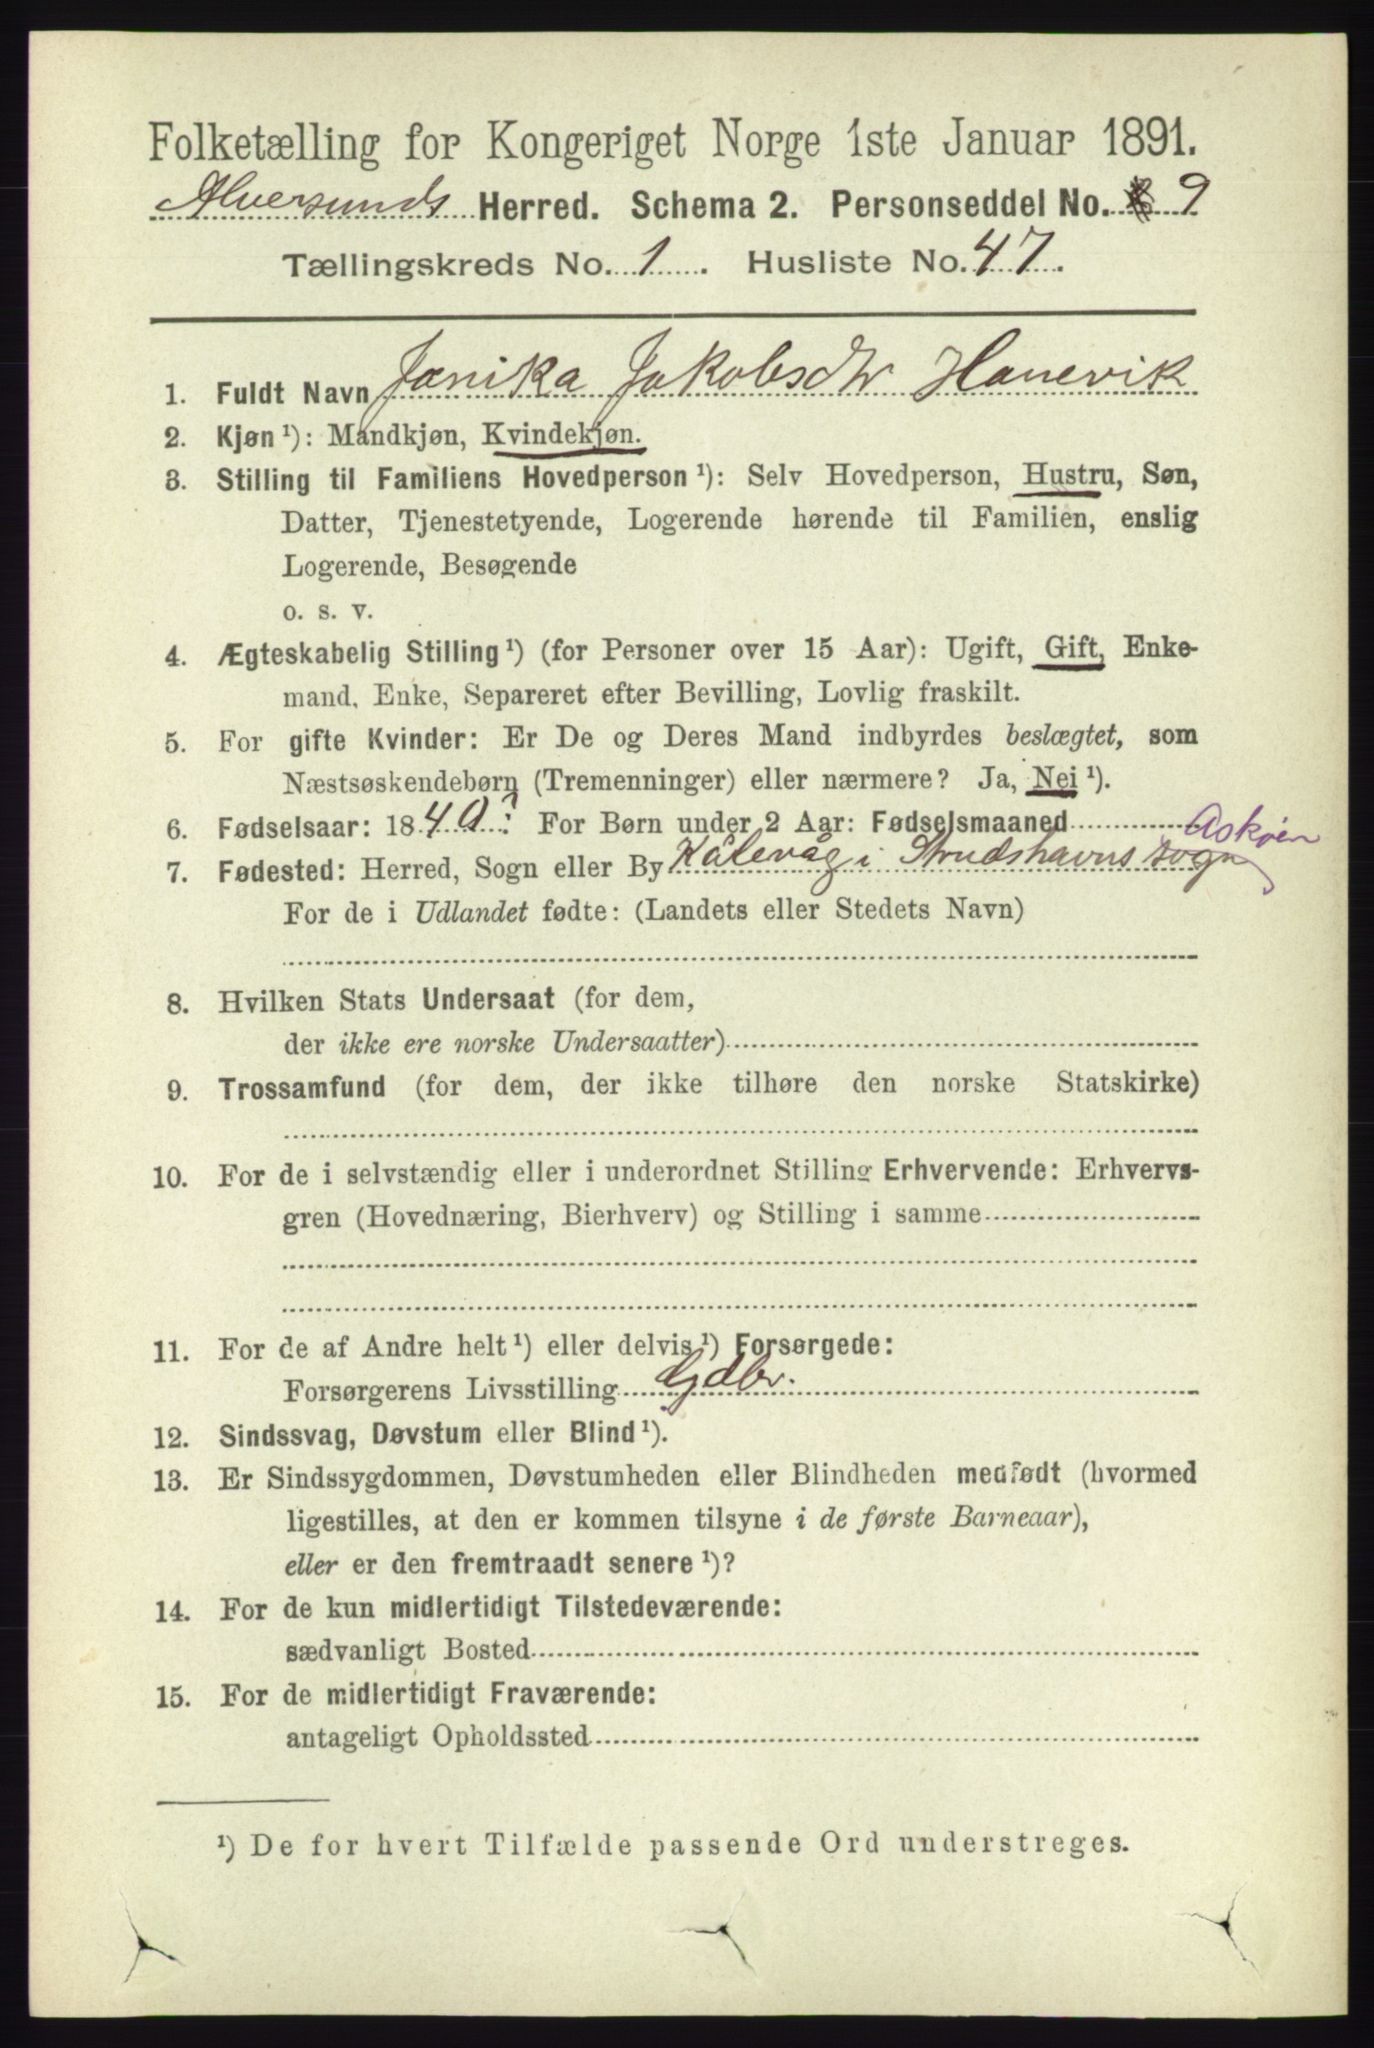 Folketælling for Kongeriget Norge 1ste Januar 1891.
Alversunds Herred. Schema 2. Personseddel No. 9
Tællingskreds No. 1. Husliste No. 47.
1. Fuldt Navn Janika Jakobsdtr Hanevik
2. Kjøn¹): Mandkjøn, Kvindekjøn.
3. Stilling til Familiens Hovedperson¹): Selv Hovedperson, Hustru, Søn,
Datter, Tjenestetyende, Logerende hørende til Familien, enslig
Logerende, Besøgende
o. s. v.
4. Ægteskabelig Stilling¹) (for Personer over 15 Aar): Ugift, Gift, Enke-
mand, Enke, Separeret efter Bevilling, Lovlig fraskilt.
5. For gifte Kvinder: Er De og Deres Mand indbyrdes beslægtet, som
Næstsøskendebørn (Tremenninger) eller nærmere? Ja, Nei¹).
6. Fødselsaar: 1840? For Børn under 2 Aar: Fødselsmaaned
Askøen
7. Fødested: Herred, Sogn eller By Kålevåg i Strudshavns sogn
For de i Udlandet fødte: (Landets eller Stedets Navn)
8. Hvilken Stats Undersaat (for dem,
der ikke ere norske Undersaatter)
9. Trossamfund (for dem, der ikke tilhøre den norske Statskirke)
10. For de i selvstændig eller i underordnet Stilling Erhvervende: Erhvervs-
gren (Hovednæring, Bierhverv) og Stilling i samme
11. For de af Andre helt¹) eller delvis¹) Forsørgede:
Forsørgerens Livsstilling Gdbr.
12. Sindssvag, Døvstum eller Blind¹).
13. Er Sindssygdommen, Døvstumheden eller Blindheden medfødt (hvormed
ligestilles, at den er kommen tilsyne i de første Barneaar),
eller er den fremtraadt senere¹)?
14. For de kun midlertidigt Tilstedeværende:
sædvanligt Bosted
15. For de midlertidigt Fraværende:
antageligt Opholdssted
¹) De for hvert Tilfælde passende Ord understreges.